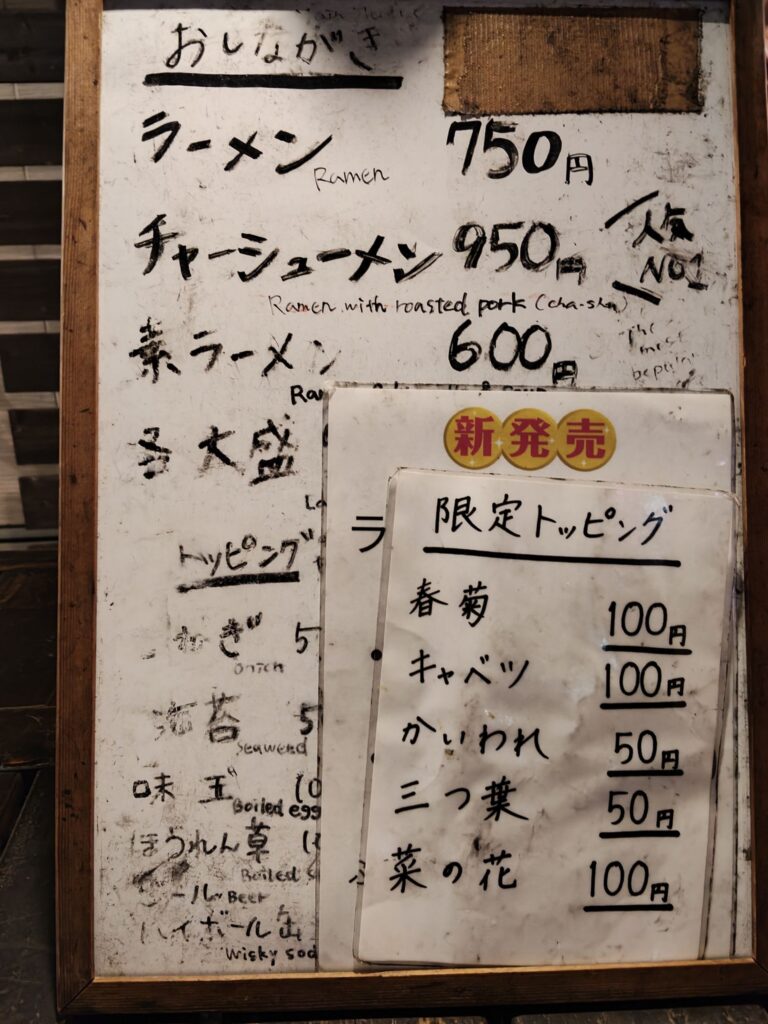 おしながき
ラーメン 750円
Ramen
チャーシューメン 950円 人気 NO1
Ramen with roasted pork (cha-shu)
素ラーメン 600円
The most
Ra
各大盛
トッピング
ねぎ 5
onion
海苔 5
Seaweed
味玉 10
Boiled egg
ほうれん草 1
Boiled s
ビール Beer
ハイボール缶
Wisky sod
新発売
ラ
限定トッピング
春菊 100円
キャベツ 100円
かいわれ 50円
三つ葉 50円
菜の花 100円